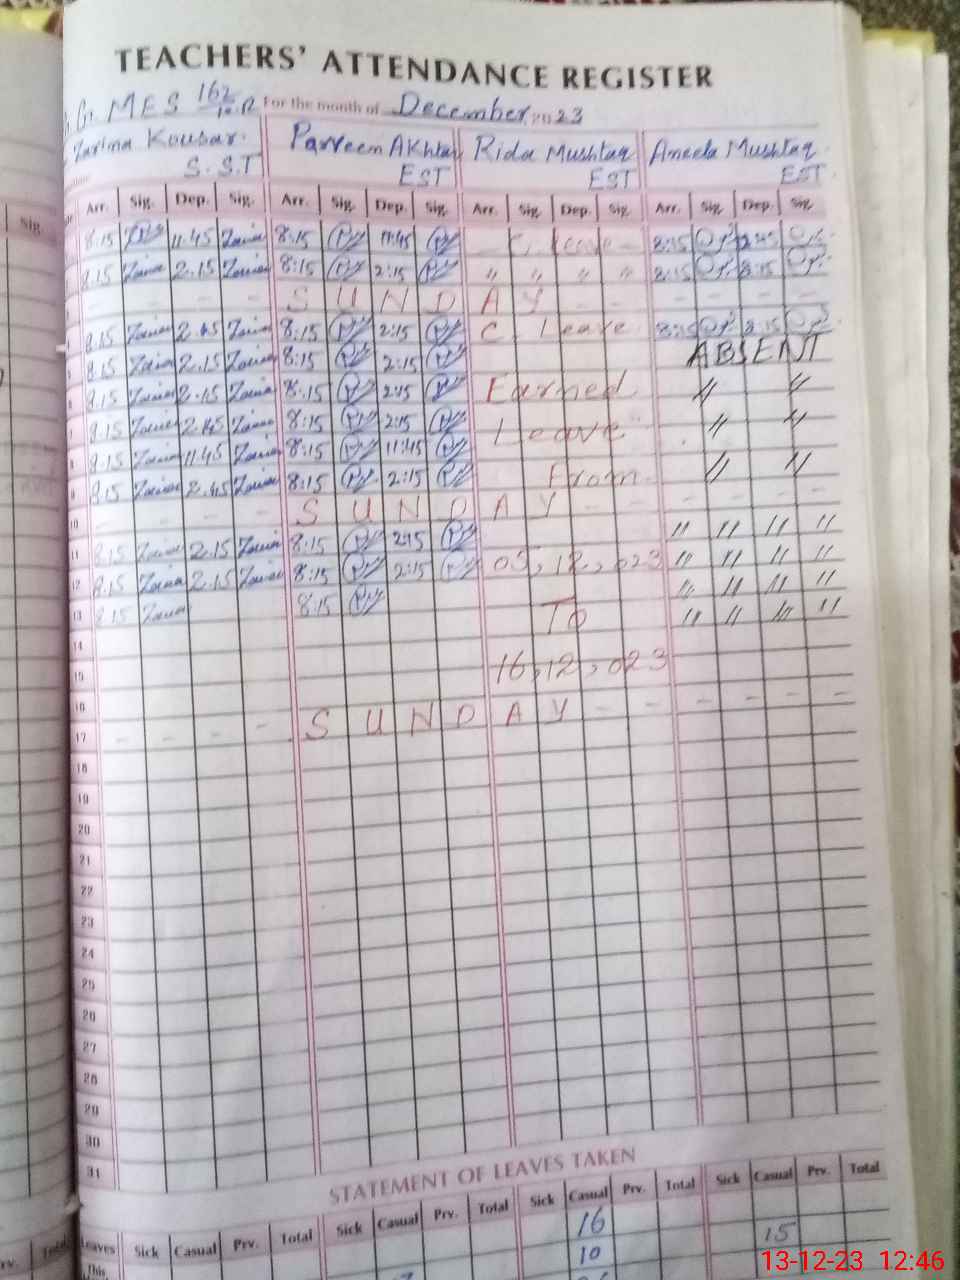 TEACHERS' ATTENDANCE REGISTER
G. MES 162/10.R For the month of December, 2023
Zarina Kousar. Parveen Akhtar Rida Mushtaq Aneela Mushtaq.
S.ST EST EST EST
Sig. Arr. Sig. Dep. Sig. Arr. Sig. Dep. Sig. Arr. Sig. Dep. Sig. Arr. Sig. Dep. Sig.
8.15 11.45 Zarina 8:15 11:45 C. Leave 8:15 2:45
8.15 Zarina 2.15 Zarina 8:15 2:15 " " " " 8:15
- - - - S U N D A Y - - - - - -
8.15 Zarina Zarina 8:15 2:15 C. Leave 8:15
8.15 Zarina 2.15 Zarina 8:15 2:15 ABSENT
8.15 Zarina Zarina 8:15 2:15 Earned " "
8.15 Zarina Zarina 8:15 2:15 Leave " "
8 8.15 Zarina 11.45 Zarina 8:15 11:45
9 8.15 Zarina 2.45 Zarina 8:15 2:15 From " "
10 - - - - S U N D A Y - - - - - -
11 8.15 Zarina 2.15 Zarina 8:15 2:15 " " " "
12 8.15 Zarina 2.15 Zarina 8:15 2:15 05,12,023 " " " "
13 8.15 Zarina 8:15 To " " " "
14 " " " "
15 16,12,023
16
17 - - - - S U N D A Y - - - - - -
18
19
20
21
22
23
24
25
26
27
28
29
30
31
STATEMENT OF LEAVES TAKEN
Leaves Sick Casual Prv. Total Sick Casual Prv. Total Sick Casual Prv. Total Sick Casual Prv. Total
This 16 15
10
13-12-23 12:46